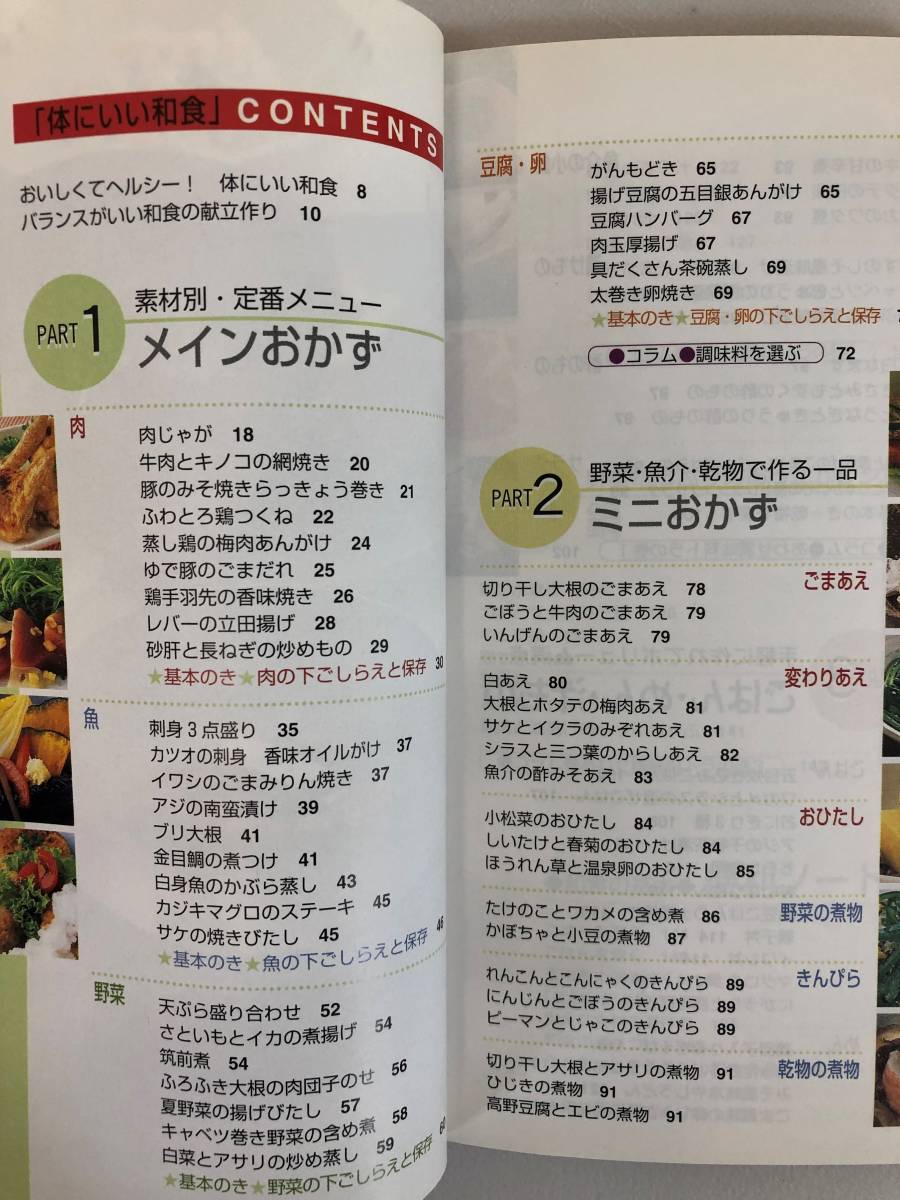 「体にいい和食」CONTENTS
おいしくてヘルシー！ 体にいい和食 8
バランスがいい和食の献立作り 10
PART 1
素材別・定番メニュー
メインおかず
肉
肉じゃが 18
牛肉とキノコの網焼き 20
豚のみそ焼きらっきょう巻き 21
ふわとろ鶏つくね 22
蒸し鶏の梅肉あんがけ 24
ゆで豚のごまだれ 25
鶏手羽先の香味焼き 26
レバーの立田揚げ 28
砂肝と長ねぎの炒めもの 29
★基本のき★肉の下ごしらえと保存 30
魚
刺身3点盛り 35
カツオの刺身 香味オイルがけ 37
イワシのごまみりん焼き 37
アジの南蛮漬け 39
ブリ大根 41
金目鯛の煮つけ 41
白身魚のかぶら蒸し 43
カジキマグロのステーキ 45
サケの焼きびたし 45
★基本のき★魚の下ごしらえと保存 46
野菜
天ぷら盛り合わせ 52
さといもとイカの煮揚げ 54
筑前煮 54
ふろふき大根の肉団子のせ 56
夏野菜の揚げびたし 57
キャベツ巻き野菜の含め煮 58
白菜とアサリの炒め蒸し 59
★基本のき★野菜の下ごしらえと保存
豆腐・卵
がんもどき 65
揚げ豆腐の五目銀あんがけ 65
豆腐ハンバーグ 67
肉玉厚揚げ 67
具だくさん茶碗蒸し 69
太巻き卵焼き 69
★基本のき★豆腐・卵の下ごしらえと保存
●コラム●調味料を選ぶ 72
PART 2
野菜・魚介・乾物で作る一品
ミニおかず
ごまあえ
切り干し大根のごまあえ 78
ごぼうと牛肉のごまあえ 79
いんげんのごまあえ 79
変わりあえ
白あえ 80
大根とホタテの梅肉あえ 81
サケとイクラのみぞれあえ 81
シラスと三つ葉のからしあえ 82
魚介の酢みそあえ 83
おひたし
小松菜のおひたし 84
しいたけと春菊のおひたし 84
ほうれん草と温泉卵のおひたし 85
野菜の煮物
たけのことワカメの含め煮 86
かぼちゃと小豆の煮物 87
きんぴら
れんこんとこんにゃくのきんぴら 89
にんじんとごぼうのきんぴら 89
ピーマンとじゃこのきんぴら 89
乾物の煮物
切り干し大根とアサリの煮物 91
ひじきの煮物 91
高野豆腐とエビの煮物 91